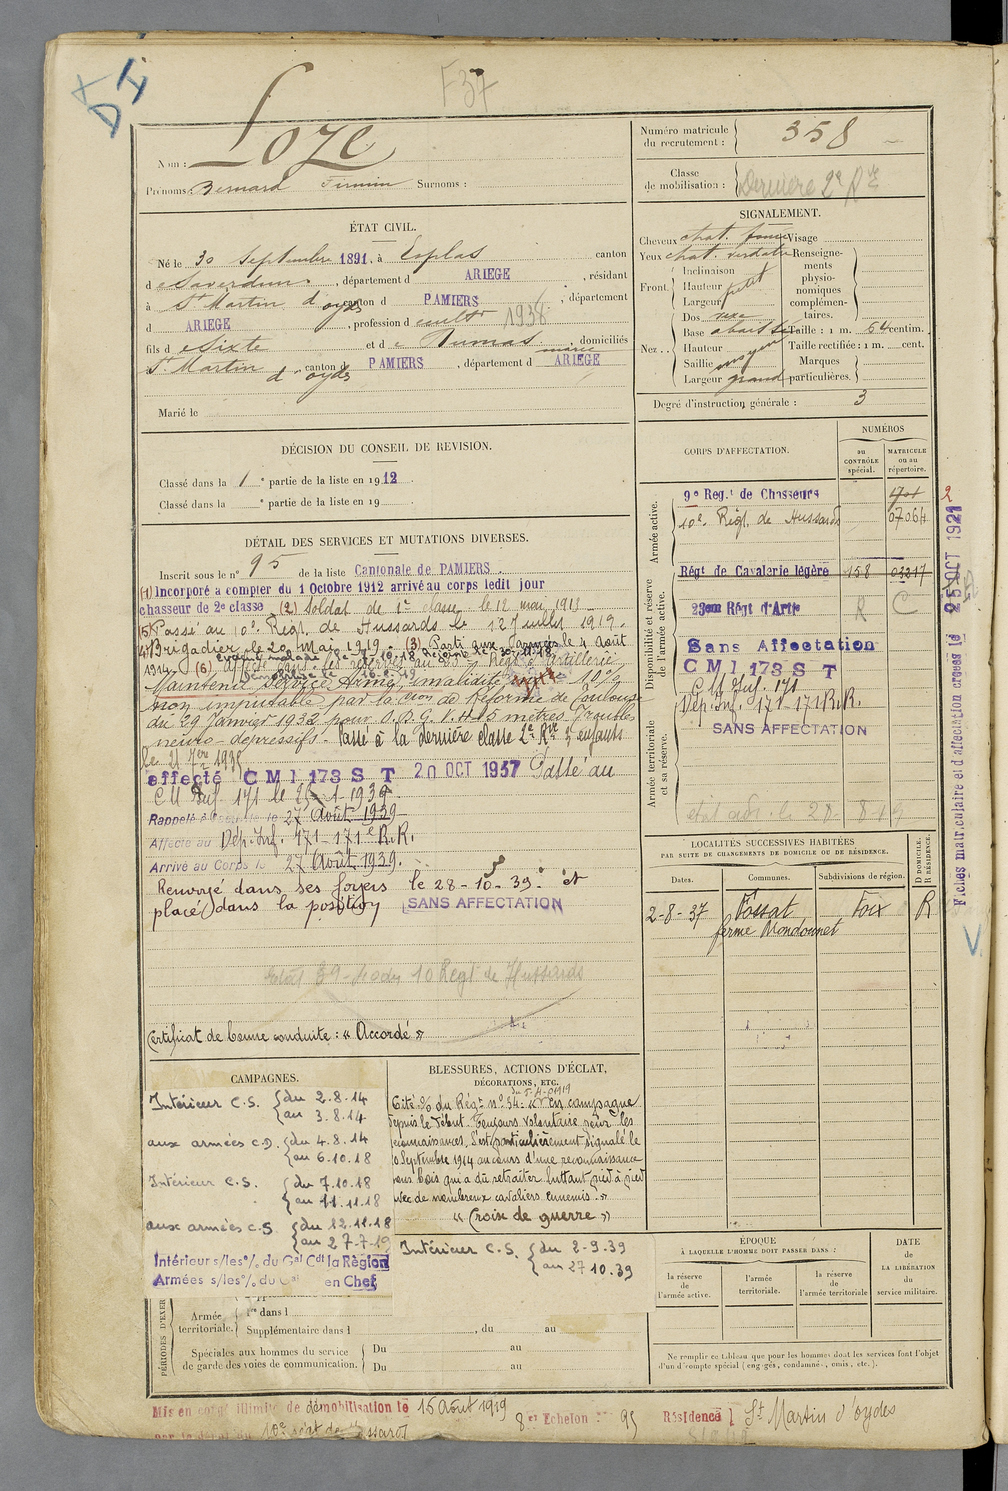 F37
Nom : Loze
Prénoms : Bernard Firmin Surnoms :
Numéro matricule du recrutement : 358
Classe de mobilisation : Dernière 2e Rve
ÉTAT CIVIL.
Né le 30 septembre 1891, à Esplas canton
de Saverdun, département d ARIEGE, résidant
à St Martin d'oydes canton d PAMIERS, département
d ARIEGE, profession d cultr 1938
fils de Sixte et de Dumas domiciliés
St Martin d'oydes canton d PAMIERS, département d ARIEGE
Marié le
SIGNALEMENT.
Cheveux chat. foncé Visage
Yeux chat. verdatre Renseignements physionomiques complémentaires.
Front. Inclinaison
Hauteur petit
Largeur
Nez.. Dos vexe
Base abaissée Taille : 1 m. 64 centim.
Hauteur Taille rectifiée : 1 m. cent.
Saillie moyen Marques
Largeur grand particulières.
Degré d'instruction générale : 3
DÉCISION DU CONSEIL DE REVISION.
Classé dans la 1e partie de la liste en 1912
Classé dans la e partie de la liste en 19
DÉTAIL DES SERVICES ET MUTATIONS DIVERSES.
Inscrit sous le n° 95 de la liste Cantonale de PAMIERS.
(1) Incorporé à compter du 1 Octobre 1912 arrivé au corps ledit jour
chasseur de 2e classe (2) Soldat de 1e classe le 12 mai 1913
(5) Passé au 10e Régt de Hussards le 12 Juillet 1919.
(4) Brigadier le 20 Mai 1919. (3) Parti aux Armées le 4 Août
1914. (6)
Maintenu Service Armé, invalidité 10%
non imputable par la Con de Réforme de Toulouse
du 29 Janvier 1932 pour
neuro-depressifs. Passé à la dernière classe 2e Rve 3 enfants
affecté CMI 173 S T 20 OCT 1937 Passé au
C M Inf. 171 le 25-1-1939
Rappelé à l'activité le 27 Août 1939
Affecté au Dép. Inf. 171-171e R.R.
Arrivé au Corps le 27 Août 1939.
Renvoyé dans ses foyers le 28-10-39 et
placé dans la position SANS AFFECTATION
10 Regt de Hussards
Certificat de bonne conduite : « Accordé »
CORPS D'AFFECTATION.
NUMÉROS
au CONTRÔLE spécial.
MATRICULE ou au répertoire.
Armée active.
9e Regt de Chasseurs 1701
10e Régt de Hussards 07064
Disponibilité et réserve de l'armée active.
Régt de Cavalerie légère 158 03217
23eme Régt d'Artie R C
Sans Affectation
CMI 173 S T
C M Inf. 171
Dép. Inf. 171-171 R.R.
SANS AFFECTATION
Armée territoriale et sa réserve.
Fiches matriculaire et d'affectation créées le 25 OCT 1921
LOCALITÉS SUCCESSIVES HABITÉES
PAR SUITE DE CHANGEMENTS DE DOMICILE OU DE RÉSIDENCE.
Dates. Communes. Subdivisions de région. D DOMICILE. R RÉSIDENCE.
2-8-37 Fossat Foix R
ferme Mondounet
CAMPAGNES.
Intérieur C.S. du 2.8.14
au 3.8.14
aux armées C.D. du 4.8.14
au 6.10.18
Intérieur C.S. du 7.10.18
au 11.11.18
aux armées C.S. du 12.11.18
au 27-7-19
Intérieur s/les % du Gal Cdt la Région
Armées s/les % du Gal en Chef
BLESSURES, ACTIONS D'ÉCLAT,
DÉCORATIONS, ETC.
Cité % du Régt n° 34 : « En campagne
depuis le début. Toujours volontaire pour les
reconnaissances. S'est particulièrement signalé le
10 Septembre 1914 au cours d'une reconnaissance
sous bois qui a dû retraiter luttant pied à pied
avec de nombreux cavaliers ennemis. »
« Croix de guerre »
Intérieur C.S. du 2-9-39
au 27 10.39
ÉPOQUE
À LAQUELLE L'HOMME DOIT PASSER DANS :
la réserve de l'armée active.
l'armée territoriale.
la réserve de l'armée territoriale
DATE DE LA LIBÉRATION du service militaire.
Ne remplir ce tableau que pour les hommes dont les services font l'objet
d'un décompte spécial (engagés, condamnés, omis, etc.).
PÉRIODES D'EXER
Armée territoriale.
1re dans l
Supplémentaire dans l , du au
Spéciales aux hommes du service
de garde des voies de communication.
Du au
Du au
Mis en congé illimité de démobilisation le 15 Août 1919
8e Echelon 95
Résidence St Martin d'oydes